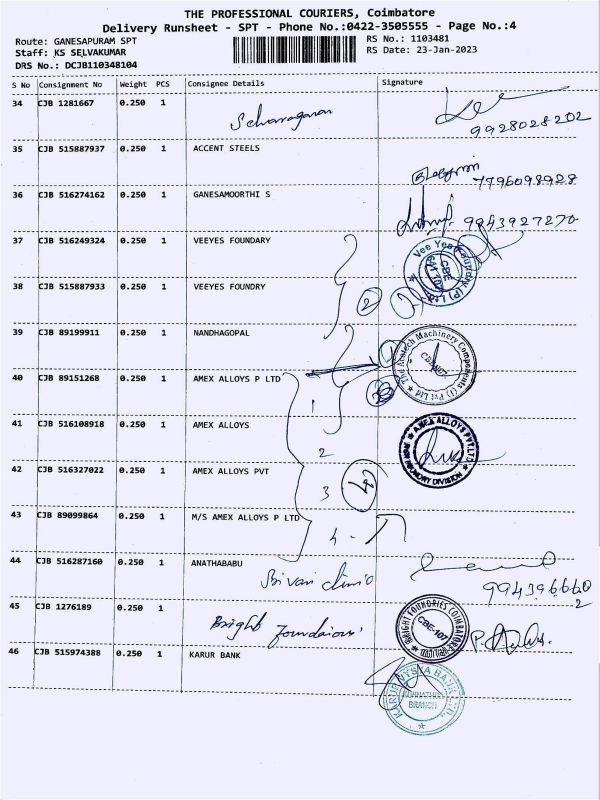 THE PROFESSIONAL COURIERS, Coimbatore
Delivery Runsheet - SPT - Phone No.:0422-3505555 - Page No.:4
Route: GANESAPURAM SPT
Staff: KS SELVAKUMAR
DRS No.: DCJB110348104
RS No.: 1103481
RS Date: 23-Jan-2023
S No Consignment No Weight PCS Consignee Details Signature
34 CJB 1281667 0.250 1
9928028202
35 CJB 515887937 0.250 1 ACCENT STEELS
7796098928
36 CJB 516274162 0.250 1 GANESAMOORTHI S
9943927270
37 CJB 516249324 0.250 1 VEEYES FOUNDARY
Vee Yes Foundry (P) Ltd
CBE
641 107
38 CJB 515887933 0.250 1 VEEYES FOUNDRY
2
39 CJB 89199911 0.250 1 NANDHAGOPAL
Machinery Components (I) Pvt Ltd
40 CJB 89151268 0.250 1 AMEX ALLOYS P LTD
1
41 CJB 516108918 0.250 1 AMEX ALLOYS
AMEX ALLOYS PVT.LTD
FOUNDRY DIVISION
2
42 CJB 516327022 0.250 1 AMEX ALLOYS PVT
3 4
43 CJB 89099864 0.250 1 M/S AMEX ALLOYS P LTD
4
44 CJB 516287160 0.250 1 ANATHABABU
9943966602
45 CJB 1276189 0.250 1
Bright
BRIGHT FOUNDRIES COIMBATORE
CBE-107
46 CJB 515974388 0.250 1 KARUR BANK
KARUR VYSYA BANK LTD.,
BRANCH